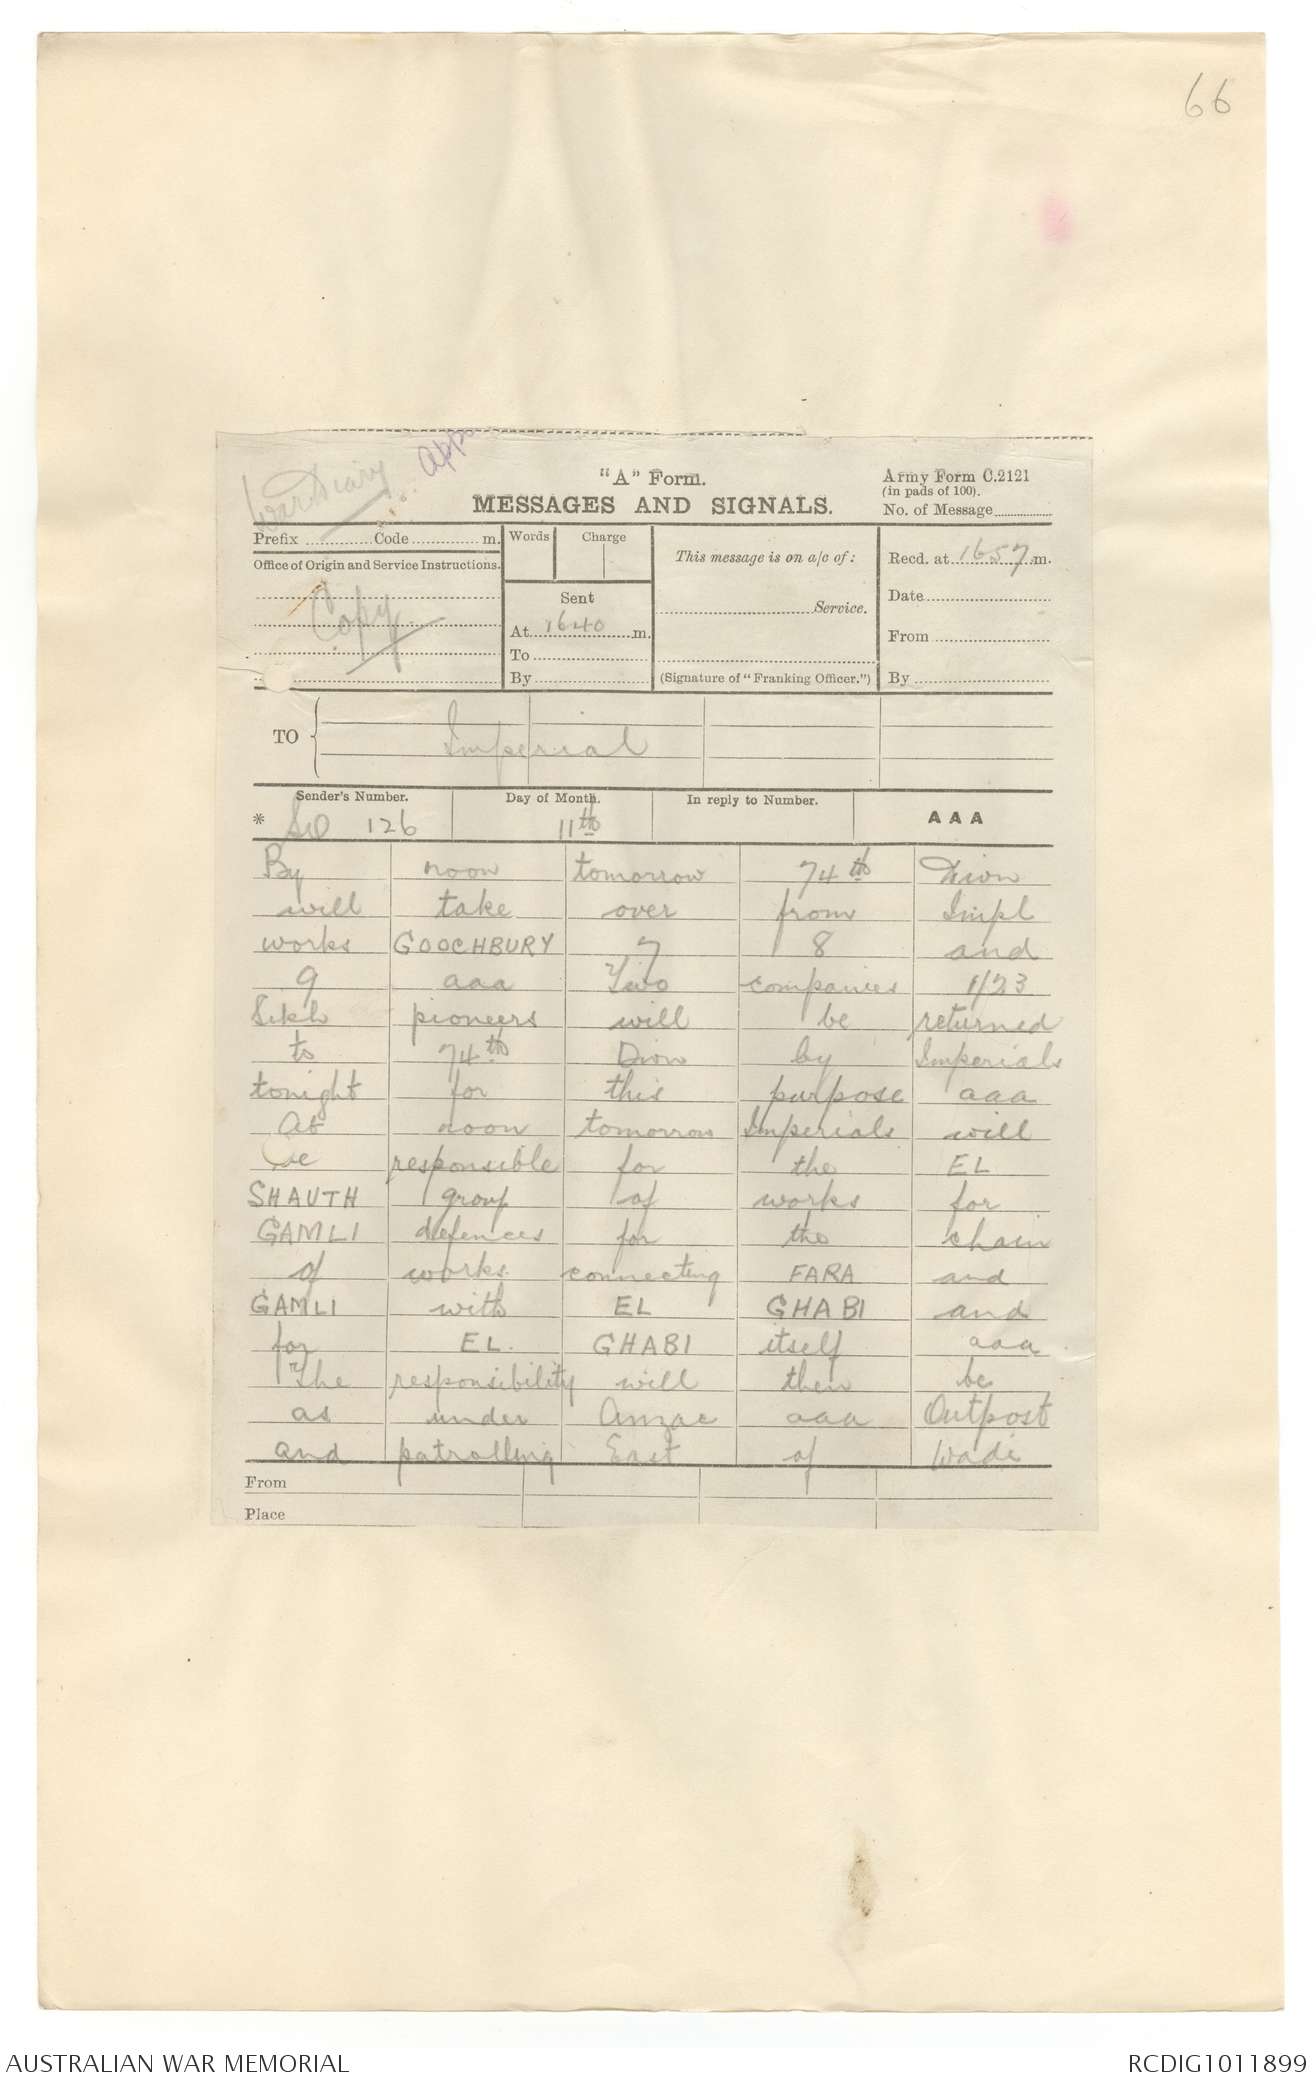 66
War Diary
"A" Form.
MESSAGES AND SIGNALS.
Army Form C.2121
(in pads of 100).
No. of Message
Prefix Code m.
Words Charge
This message is on a/c of:
Recd. at 1657 m.
Office of Origin and Service Instructions.
Copy
Sent
At 1640 m.
To
By
Service.
(Signature of "Franking Officer.")
Date
From
By
TO Imperial
Sender's Number. Day of Month. In reply to Number. AAA
* 126 11th
By noon tomorrow 74th Divn
will take over from Impl
works GOOCHBURY 7 8 and
9 aaa Two companies 1/23
Sikh pioneers will be returned
to 74th Divn by Imperials
tonight for this purpose aaa
At noon tomorrow Imperials will
be responsible for the EL
SHAUTH group of works for
GAMLI defences for the chain
of works connecting FARA and
GAMLI with EL GHABI and
for EL. GHABI itself aaa
The responsibility will then be
as under Anzac aaa Outpost
and patrolling East of Wadi
From
Place
AUSTRALIAN WAR MEMORIAL
RCDIG1011899